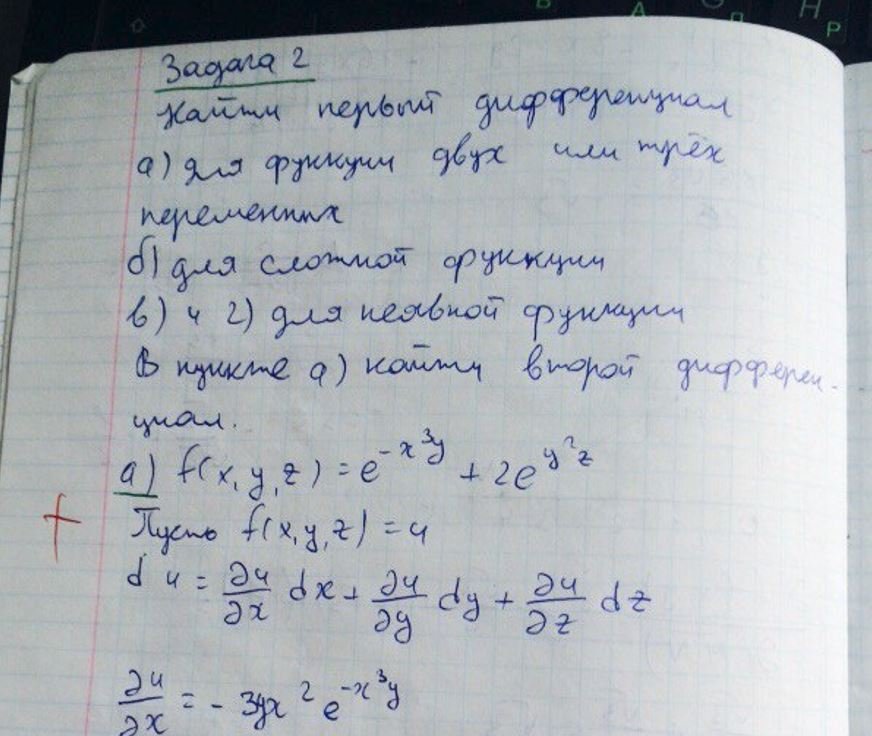 Задача 2
Найти первый дифференциал
а) для функции двух или трёх
переменных
б) для сложной функции
в) и г) для неявной функции
В пункте а) найти второй дифферен-
циал.
а) f(x,y,z) = e^{-x^3y} + 2e^{y^2z}
Пусть f(x,y,z) = u
du = ∂u/∂x dx + ∂u/∂y dy + ∂u/∂z dz
∂u/∂x = -3yx^2 e^{-x^3y}